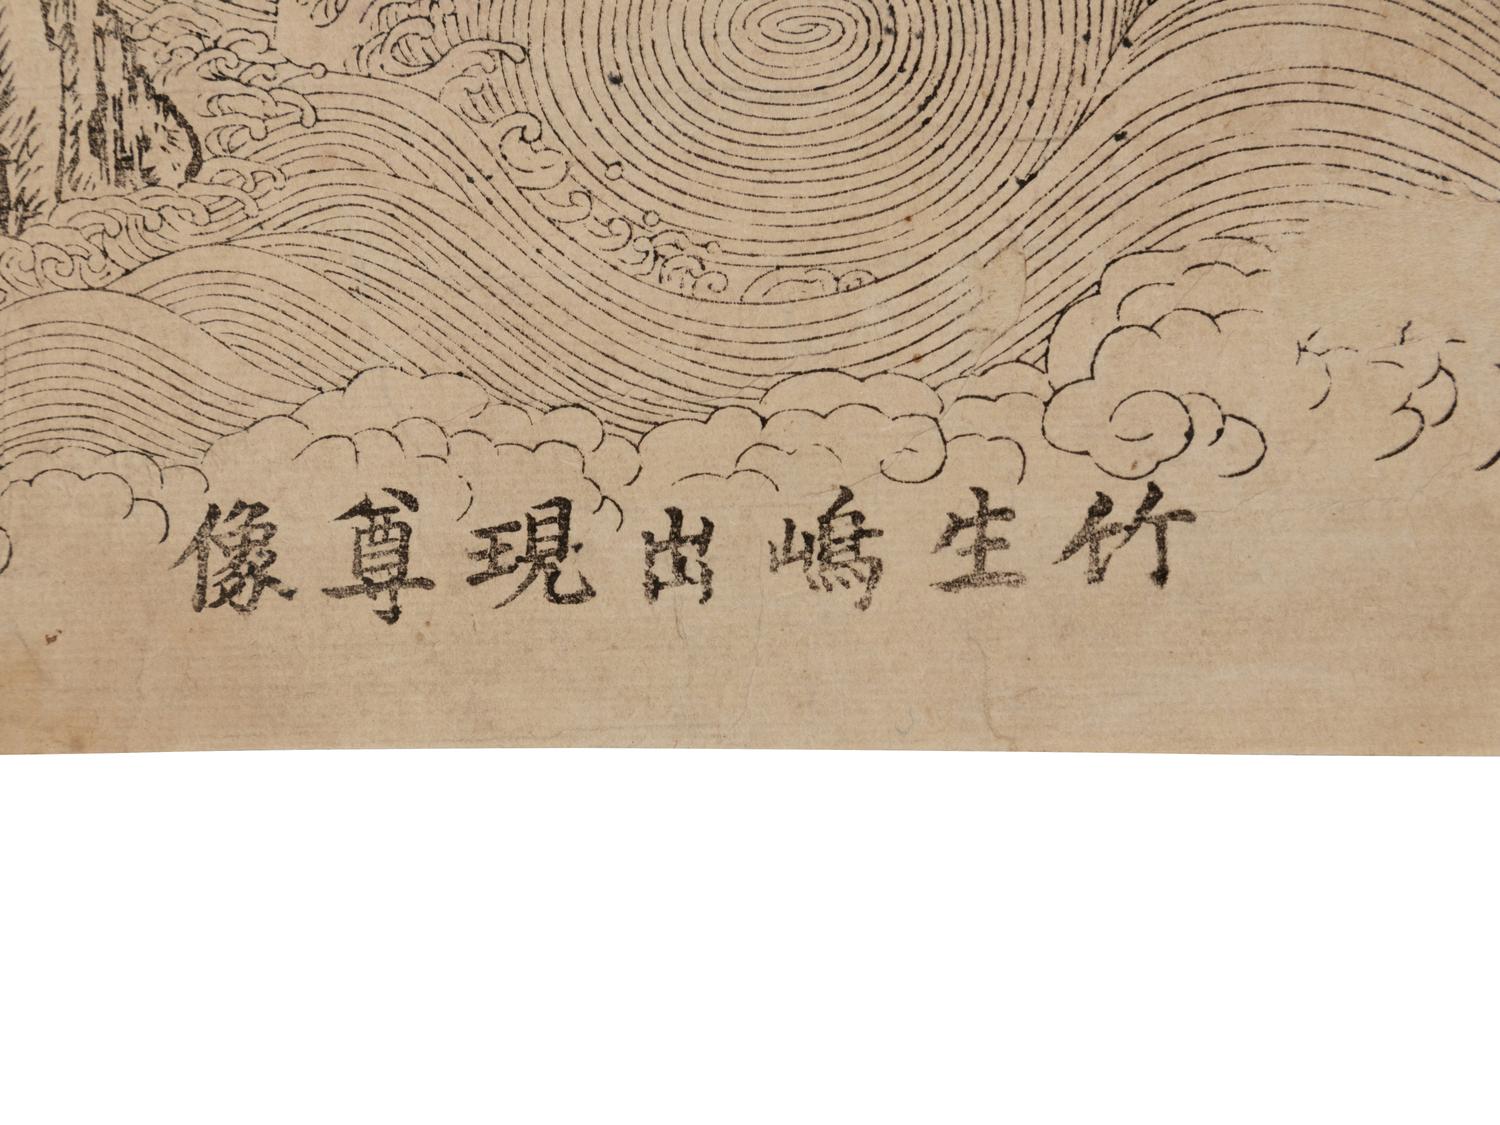 竹生嶋出現尊像